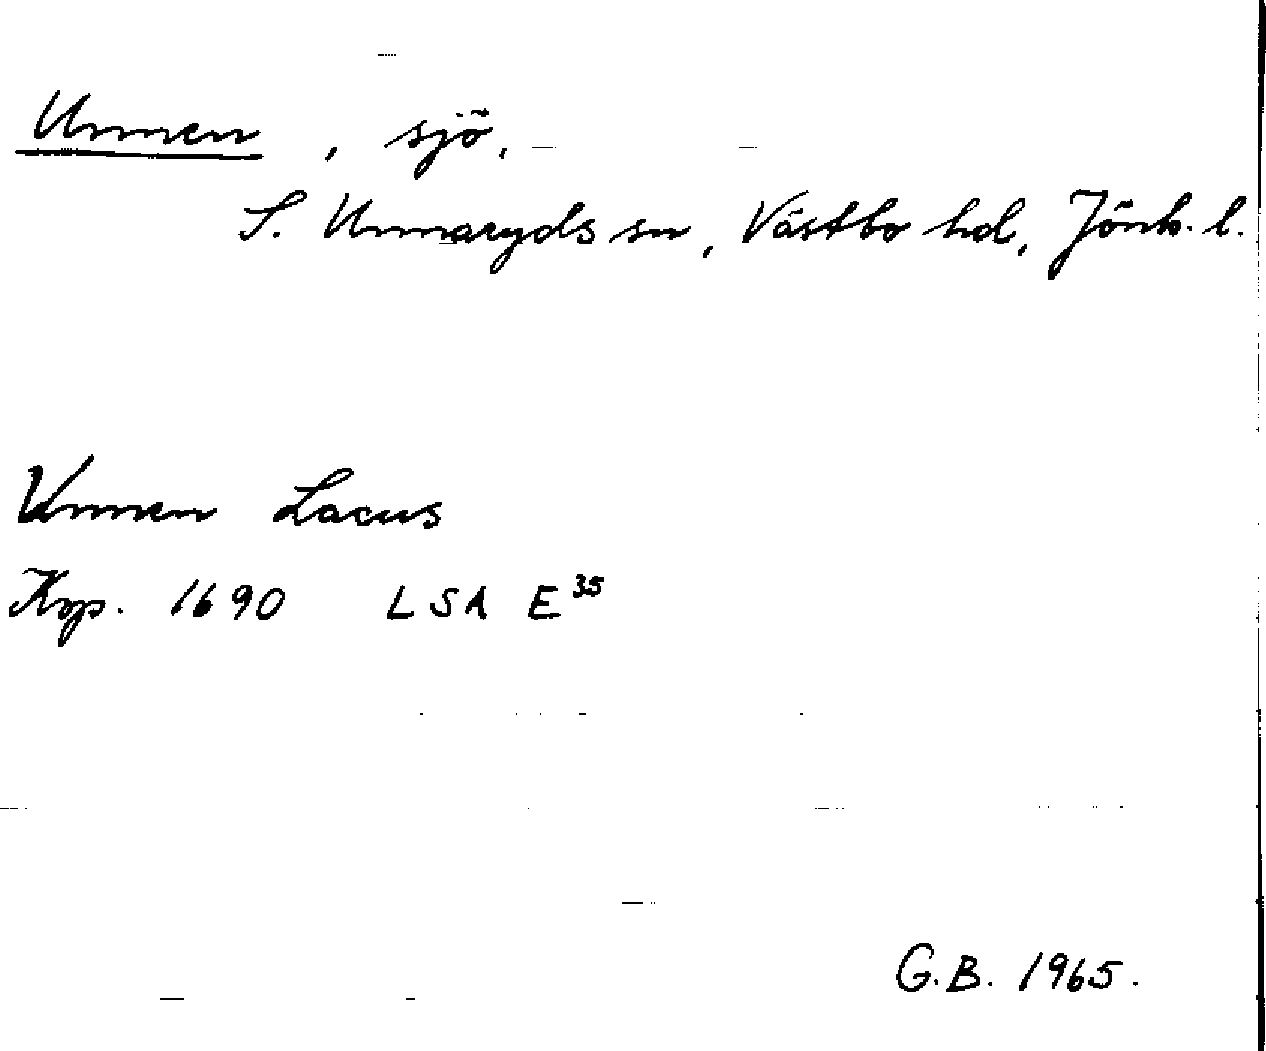 Unnen, sjö,
S. Unnaryds sn, Västbo hd, Jönk. l.
Vnnen Lacus
Kop. 1690 LSA E³⁵
G.B. 1965.